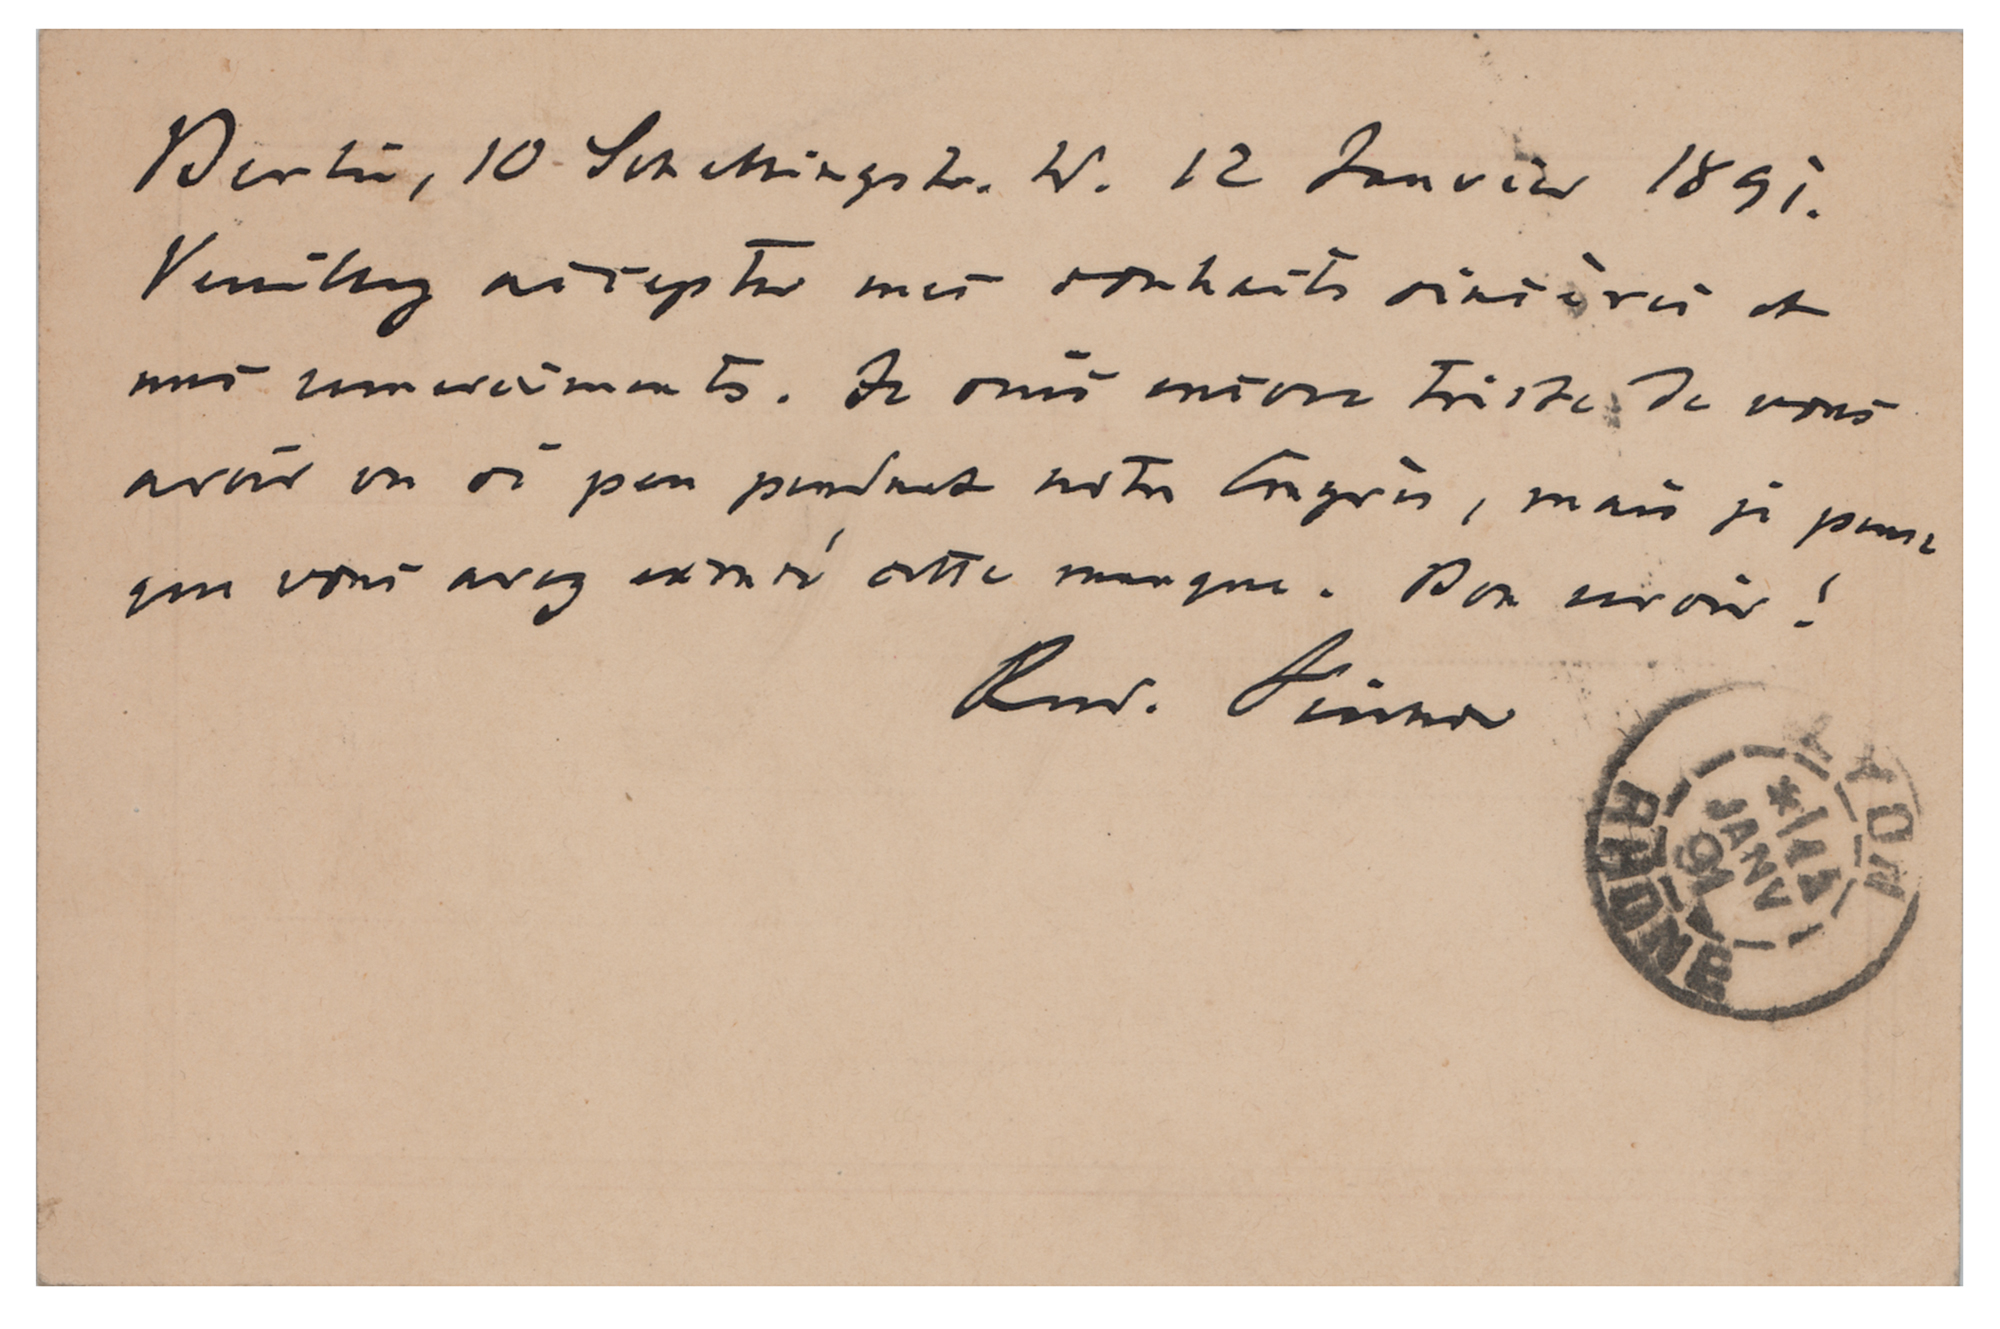 Berlin, 10 Schellingstr. W. 12 Janvier 1891.
Veuillez accepter mes souhaits sincères et
mes remerciments. Je suis encore triste de vous
avoir vu si peu pendant notre Congrès, mais je pense
que vous avez excusé cette manque. Bon revoir!
Rud.
LYON
JANV
91
RHONE